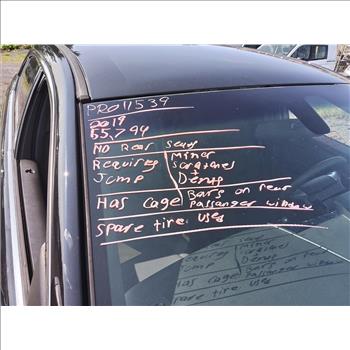 PRO11539
2019
55,794
NO Rear Seats
Requires Jump
Minor Scratches + Dents
Has Cage
Bars on rear Passanger window
Spare tire used